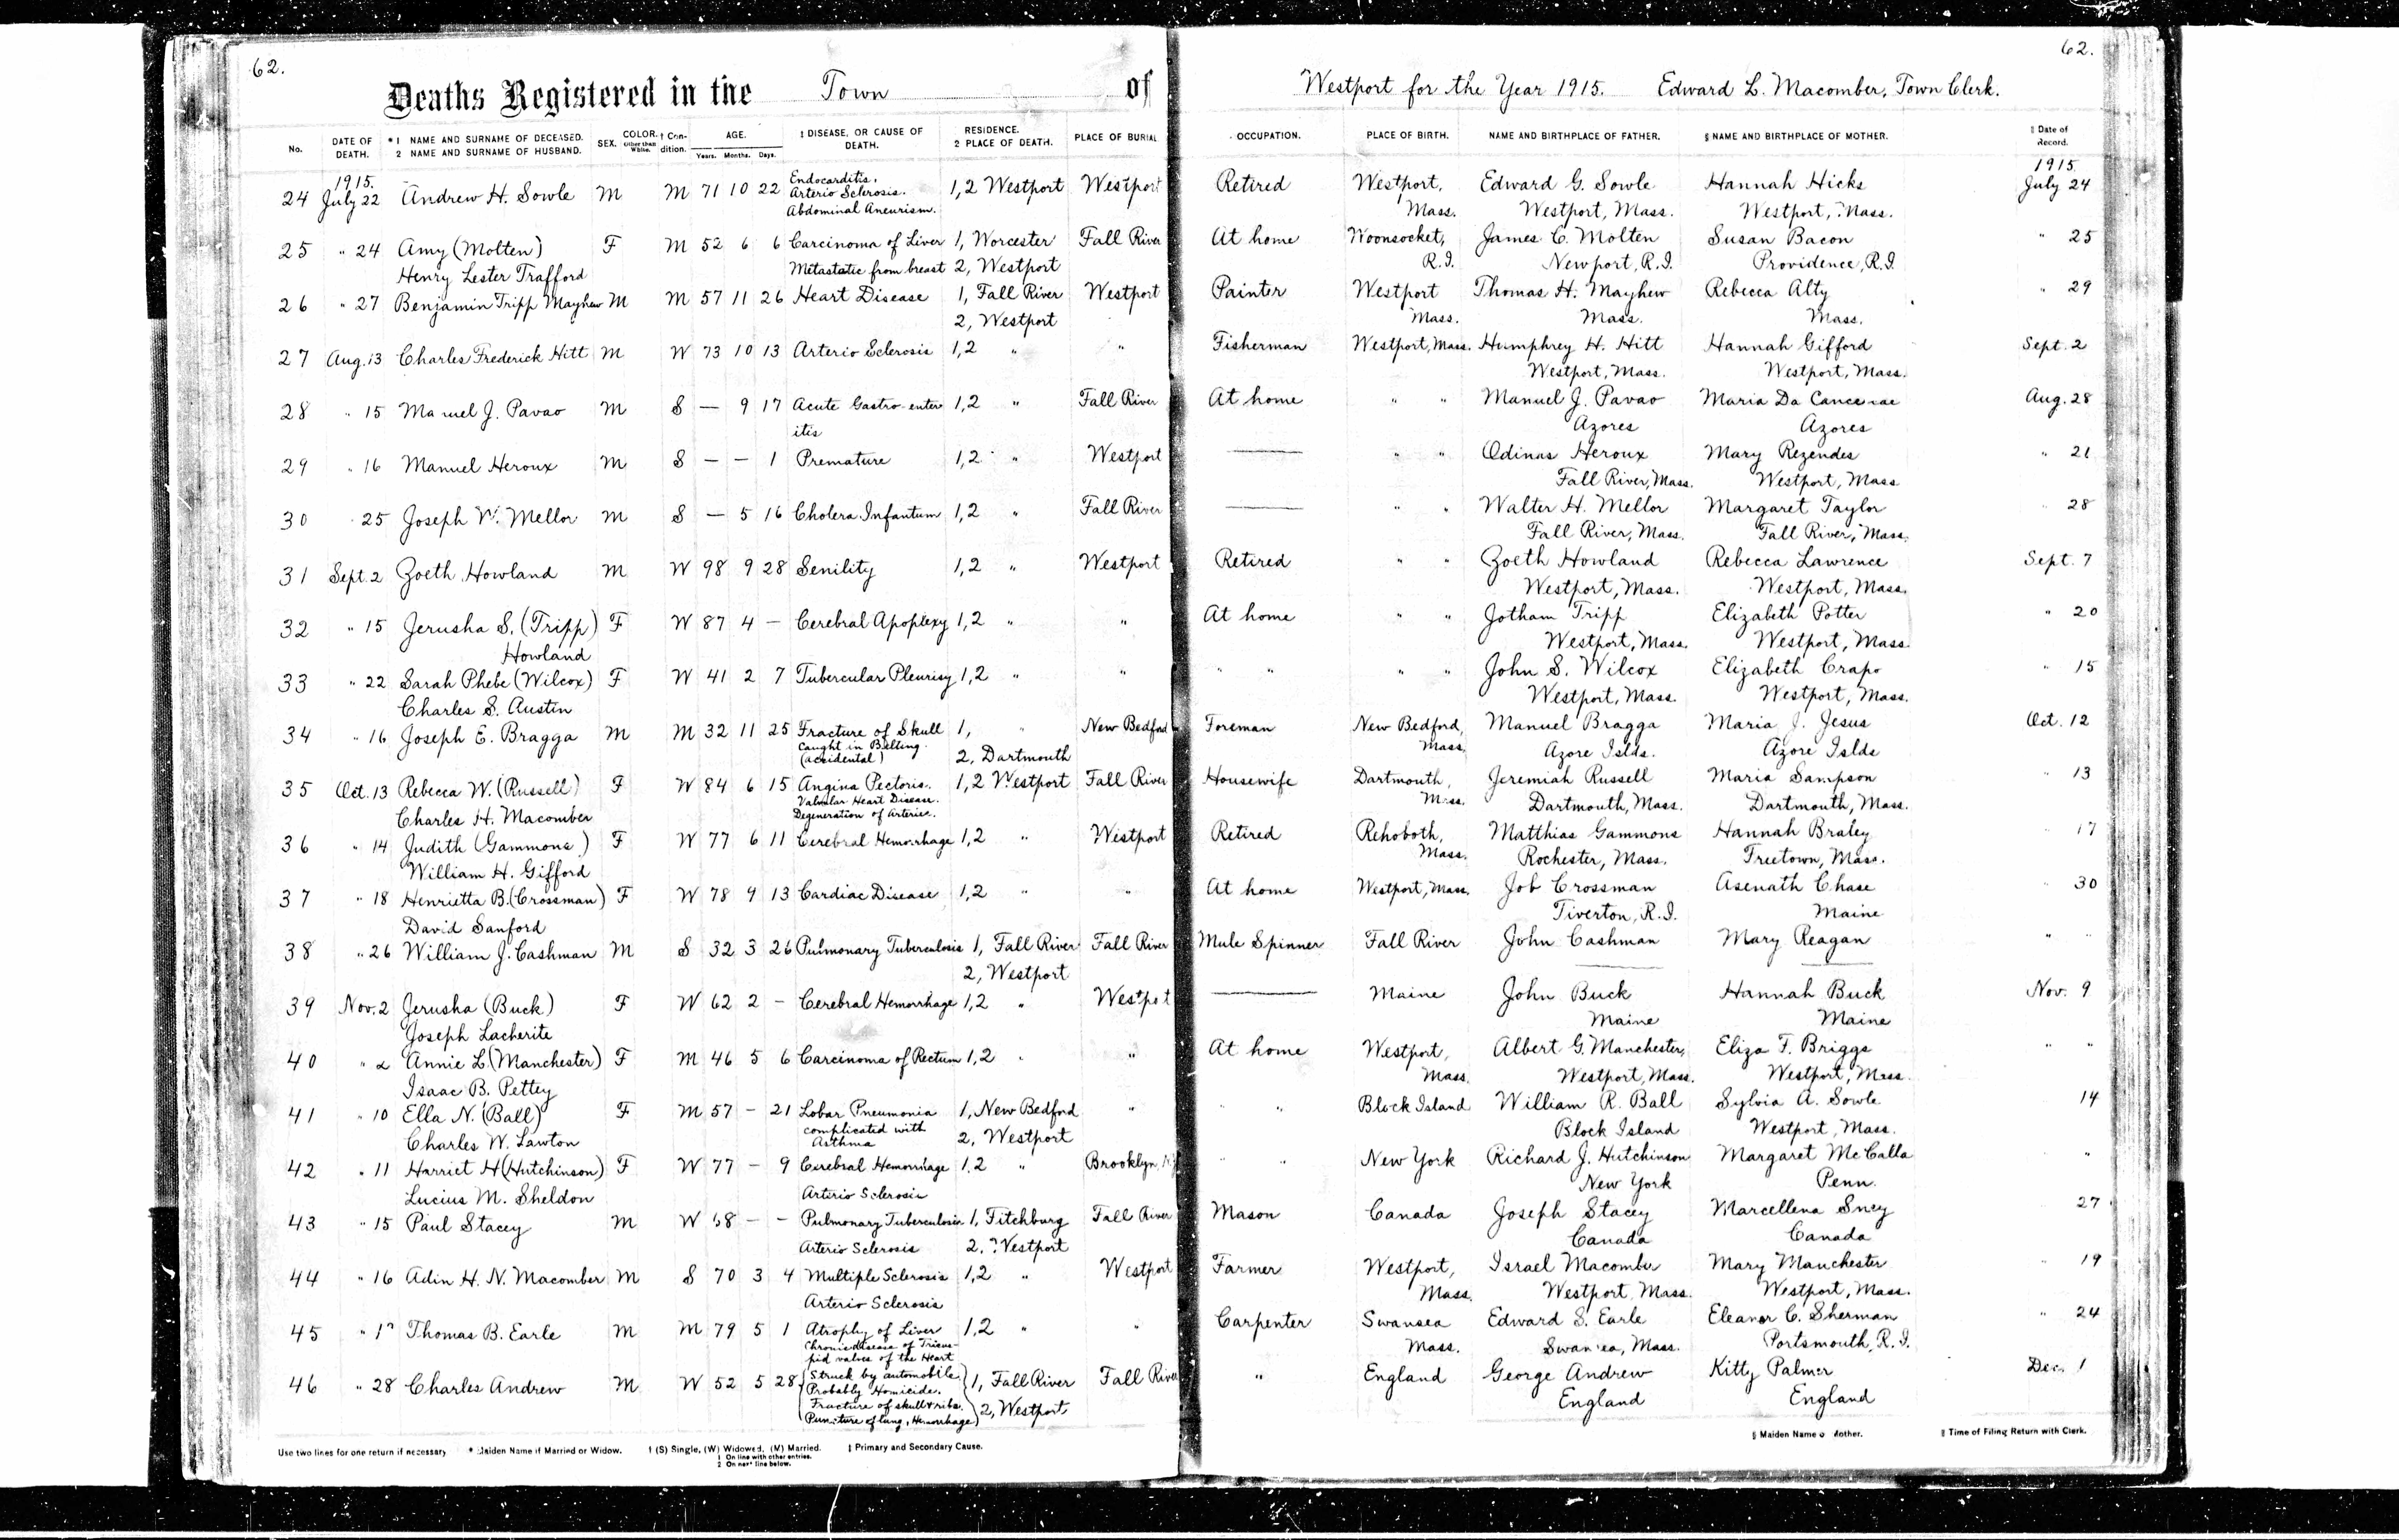 62.
62.
Deaths Registered in the Town of Westport for the Year 1915. Edward L. Macomber, Town Clerk.
No. DATE OF DEATH. * 1 NAME AND SURNAME OF DECEASED. 2 NAME AND SURNAME OF HUSBAND. SEX. COLOR. Other than White. † Condition. AGE. Years. Months. Days. ‡ DISEASE, OR CAUSE OF DEATH. RESIDENCE. 2 PLACE OF DEATH. PLACE OF BURIAL OCCUPATION. PLACE OF BIRTH. NAME AND BIRTHPLACE OF FATHER. § NAME AND BIRTHPLACE OF MOTHER. ‖ Date of Record.
1915. Endocarditis. 1915.
24 July 22 Andrew H. Sowle M M 71 10 22 Arterio Sclerosis. 1,2 Westport Westport Retired Westport, Edward G. Sowle Hannah Hicks July 24
Abdominal Aneurism. Mass. Westport, Mass. Westport, Mass.
25 " 24 Amy (Molten) F M 52 6 6 Carcinoma of Liver 1, Worcester Fall River At home Woonsocket, James C. Molten Susan Bacon " 25
Henry Lester Trafford Metastatic from breast 2, Westport R.I. Newport, R.I. Providence, R.I.
26 " 27 Benjamin Tripp Mayhew M M 57 11 26 Heart Disease 1, Fall River Westport Painter Westport Thomas H. Mayhew Rebecca Alty " 29
2, Westport Mass. Mass. Mass.
27 Aug. 13 Charles Frederick Hitt M W 73 10 13 Arterio Sclerosis 1,2 " " Fisherman Westport, Mass. Humphrey H. Hitt Hannah Gifford Sept. 2
Westport, Mass. Westport, Mass.
28 " 15 Manuel J. Pavao M S — 9 17 Acute Gastro-enter 1,2 " Fall River At home " " Manuel J. Pavao Maria Da Aug. 28
itis Azores Azores
29 " 16 Manuel Heroux M S — — 1 Premature 1,2 " Westport — " " Odinas Heroux Mary Rezendes " 21
Fall River, Mass. Westport, Mass
30 " 25 Joseph W. Mellor M S — 5 16 Cholera Infantum 1,2 " Fall River — " " Walter H. Mellor Margaret Taylor 28
Fall River, Mass. Fall River, Mass.
31 Sept. 2 Zoeth Howland M W 98 9 28 Senility 1,2 " Westport Retired " " Zoeth Howland Rebecca Lawrence Sept. 7
Westport, Mass. Westport, Mass.
32 " 15 Jerusha S. (Tripp) F W 87 4 — Cerebral Apoplexy 1,2 " " At home " " Jotham Tripp Elizabeth Potter " 20
Howland Westport, Mass. Westport, Mass.
33 " 22 Sarah Phebe (Wilcox) F W 41 2 7 Tubercular Pleurisy 1,2 " " " " " " John S. Wilcox Elizabeth Crapo " 15
Charles S. Austin Westport, Mass. Westport, Mass.
34 " 16 Joseph E. Bragga M M 32 11 25 Fracture of Skull 1, " New Bedford Foreman New Bedford, Manuel Bragga Maria J. Jesus Oct. 12
caught in Belting. (accidental) 2, Dartmouth Mass. Azore Islds. Azore Islds
35 Oct. 13 Rebecca W. (Russell) F W 84 6 15 Angina Pectoris. 1,2 Westport Fall River Housewife Dartmouth, Jeremiah Russell Maria Sampson " 13
Charles H. Macomber Valvular Heart Disease. Degeneration of Arteries. Mass. Dartmouth, Mass. Dartmouth, Mass.
36 " 14 Judith (Gammons) F W 77 6 11 Cerebral Hemorrhage 1,2 " Westport Retired Rehoboth, Matthias Gammons Hannah Braley " 17
William H. Gifford Mass. Rochester, Mass. Freetown, Mass.
37 " 18 Henrietta B. (Crossman) F W 78 9 13 Cardiac Disease 1,2 " " At home Westport, Mass. Job Crossman Asenath Chase " 30
David Sanford Tiverton, R.I. Maine
38 " 26 William J. Cashman M S 32 3 26 Pulmonary Tuberculosis 1, Fall River Fall River Mule Spinner Fall River John Cashman Mary Reagan " "
2, Westport — —
39 Nov. 2 Jerusha (Buck) F W 62 2 — Cerebral Hemorrhage 1,2 " Westport — Maine John Buck Hannah Buck Nov. 9
Joseph Lacherite Maine Maine
40 " 2 Annie L. (Manchester) F M 46 5 6 Carcinoma of Rectum 1,2 " " At home Westport, Albert G. Manchester, Eliza T. Briggs " "
Isaac B. Pettey Mass. Westport, Mass. Westport, Mass.
41 " 10 Ella N. (Ball) F M 57 — 21 Lobar Pneumonia 1, New Bedford " " " Block Island William R. Ball Sylvia A. Sowle 14
Charles W. Lawton complicated with Asthma 2, Westport Block Island Westport, Mass.
42 " 11 Harriet H (Hutchinson) F W 77 — 9 Cerebral Hemorrhage 1,2 " Brooklyn, " " New York Richard J. Hutchinson Margaret McCalla "
Lucius M. Sheldon Arterio Sclerosis New York Penn.
43 " 15 Paul Stacey M W 68 — — Pulmonary Tuberculosis 1, Fitchburg Fall River Mason Canada Joseph Stacey Marcellena Sney 27
Arterio Sclerosis 2. Westport Canada Canada
44 " 16 Adin H. N. Macomber M S 70 3 4 Multiple Sclerosis 1,2 " Westport Farmer Westport, Israel Macomber Mary Manchester " 19
Arterio Sclerosis Mass. Westport Mass. Westport, Mass.
45 " Thomas B. Earle M M 79 5 1 Atrophy of Liver 1,2 " " Carpenter Swansea Edward S. Earle Eleanor C. Sherman " 24
Chronic disease of Tricus- pid valves of the Heart Mass. Swansea, Mass. Portsmouth, R.I.
46 " 28 Charles Andrew M W 52 5 28 Struck by automobile, Probably Homicide. 1, Fall River Fall River " England George Andrew Kitty Palmer Dec. 1
Fracture of skull & ribs. Puncture of lung, Hemorrhage 2, Westport, England England
Use two lines for one return if necessary * Maiden Name if Married or Widow. † (S) Single, (W) Widowed, (M) Married. ‡ Primary and Secondary Cause. § Maiden Name of Mother. ‖ Time of Filing Return with Clerk.
1 On line with other entries.
2 On next line below.